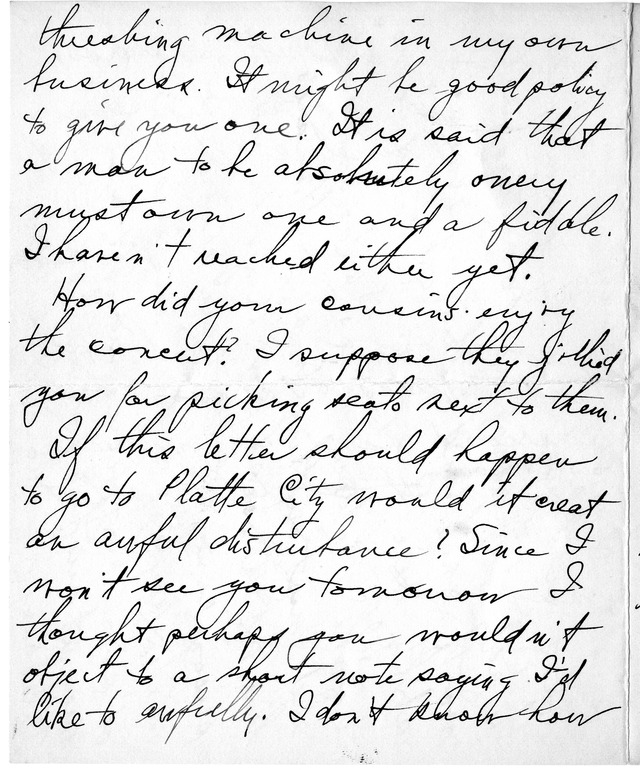 threshing machine in my own
business. It might be good policy
to give you one. It is said that
a man to be absolutely onery
must own one and a fiddle.
I haven't reached either yet.
How did your cousins enjoy
the concert? I suppose they jollied
you for picking seats next to them.
If this letter should happen
to go to Platte City would it creat
an awful disturbance? Since I
won't see you tomorrow I
thought perhaps you wouldn't
object to a short note saying I'd
like to awfully. I don't know how